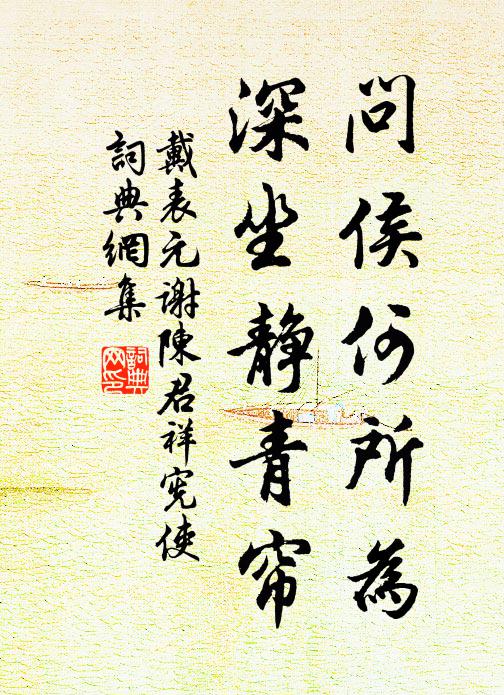 問侯何所為
深坐静青帘
戴表元谢陳君祥宪使
詞典網集
詞典网印